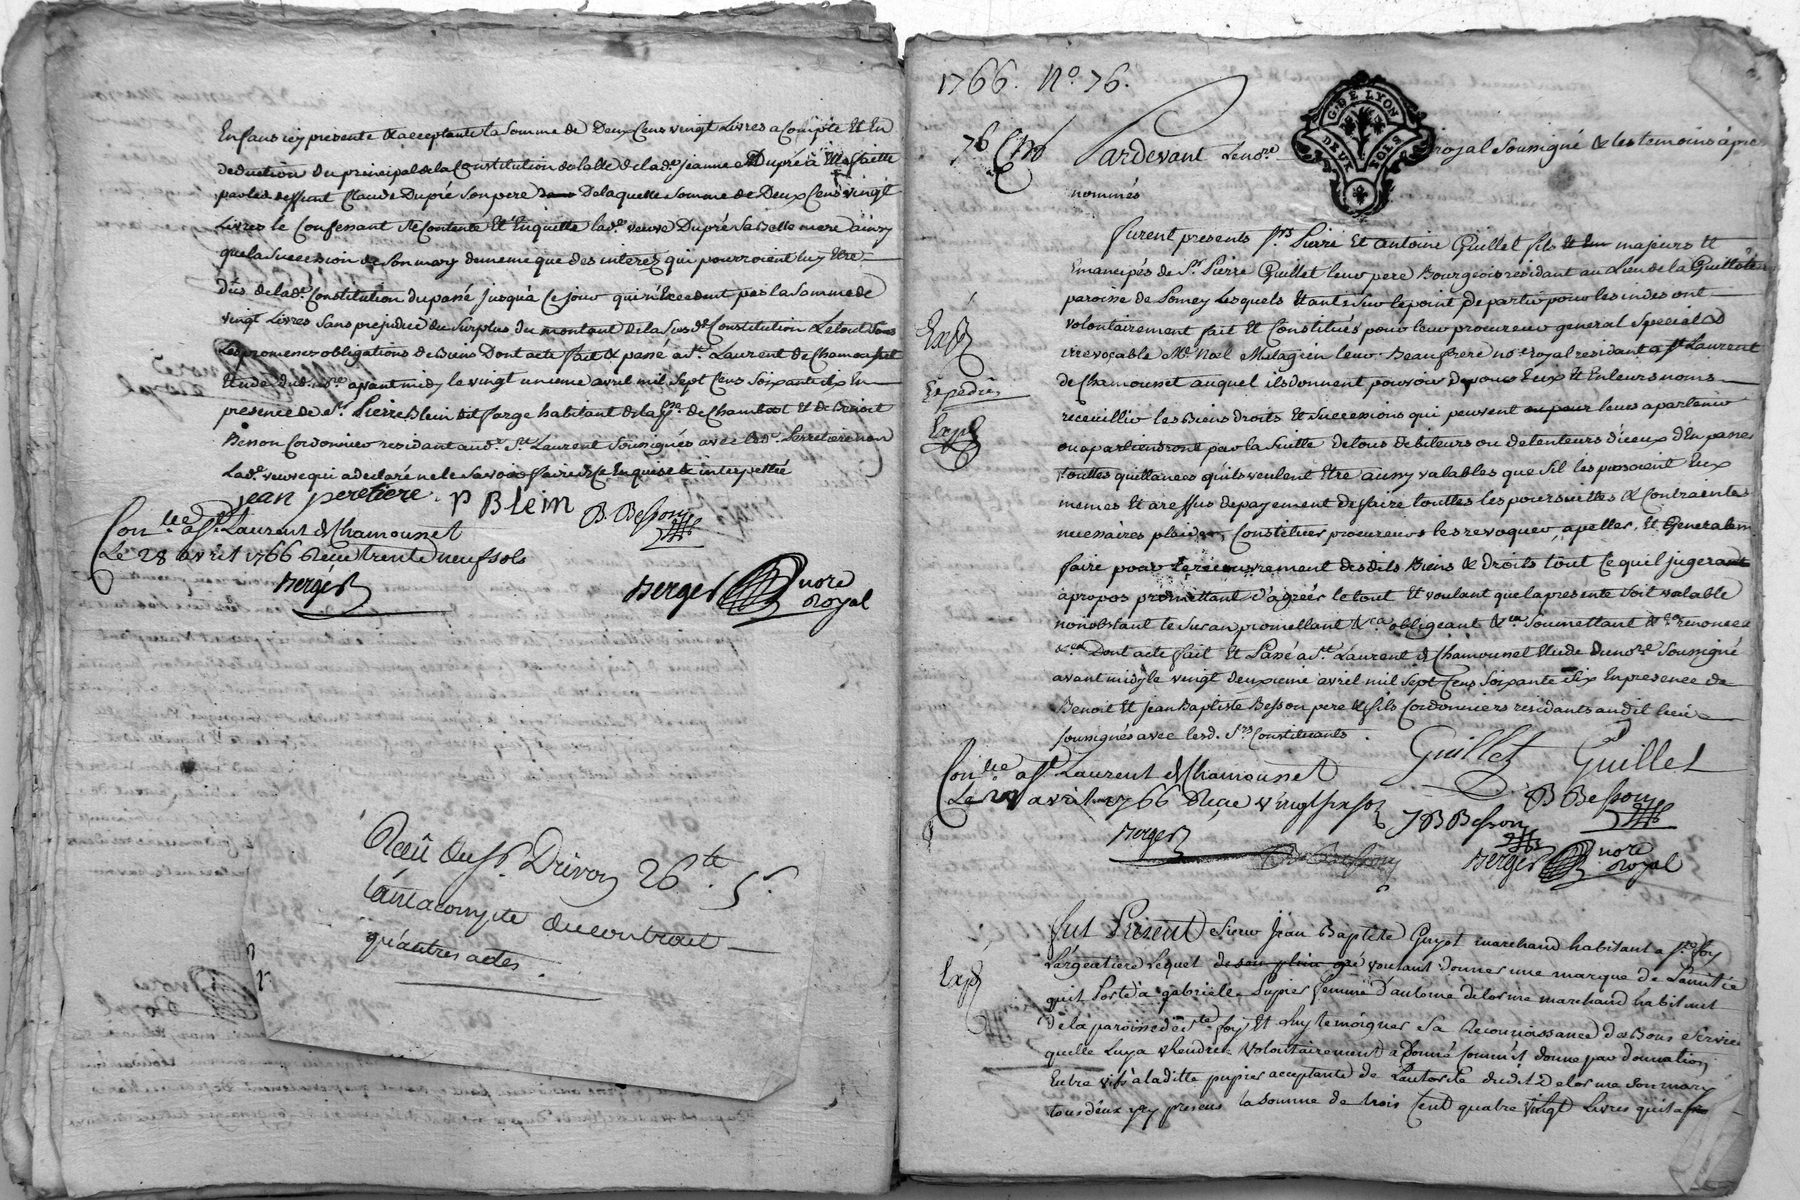 Enfans icy presente & acceptante la Somme de Deux Cens vingt Livres a Compte Et En
deduction du principal de la Constitution de dolle de lad.e Jeanne Dupré à
par led. deffunt Claude Dupré Son pere De laquelle Somme de Deux Cens vingt
Livres le Confessant Se Contente Et En quitte lad.e veuve Dupré Sa Belle mere ainsy
que la Succession de Son mary de meme que des interez qui pourroient luy Etre
dûs de lad.e Constitution du passé Jusqu'à Ce jour qui n'Excedent pas la Somme de
vingt Livres Sans prejudice du Surplus du montant de la Susd.e Constitution Le tout Sous
Les promesses obligations de Biens Dont acte fait & passé a S.t Laurent de Chamousset
Etude dud. no.re avant midy le vingt unieme avril mil Sept Cens Soixante Six En
presence de S.r Pierre Blein dit farge habitant de la p.sse de Chambost Et de Benoit
Besson Cordonnier residant aud. S.t Laurent Soussignés avec led. Perretiere non
Lad.e veuve qui a declaré ne le Savoir faire de Ce Enquise & interpellée
jean peretiere . P BLein B. Besson
Con.llé a S.t Laurent de Chamousset
Le 28 avril 1766 Reçu trente neuf sols
Berger
Berger no.re Royal
Reçû du S.r Drivon 26.tt 5.s
tant a compte du contrat
qu'autres actes .
1766. N.o 76.
76 C.on
G. DE LYON
DEUX SOLS
Pardevant Le no.re royal Soussigné & les temoins après
nommés
furent presents S.rs Pierre Et antoine Guillet fils majeurs Et
Emancipés de S.r Pierre Guillet leur pere Bourgeois residant au Lieu de la Guillotiere
paroisse de Pomey Lesquels Etant Sur le point de partir pour les indes ont
volontairement fait Et Constitués pour leur procureur general Special &
irrevocable M.e Noël leur Beaufrere no.re royal residant a S.t Laurent
Expé
de Chamousset auquel ils donnent pouvoir de pour Eux Et En leurs noms
Expediée
receuillir les Biens droits Et Successions qui peuvent ou pour leurs apartenir
Expé
ou apartiendront par la Suitte de tous debiteurs ou detenteurs d'iceux d'En passer
touttes quittances qu'ils veulent Etre aussy valables que S'il les passoient Eux
memes Et a reffus de payement de faire touttes les poursuittes & Contraintes
necessaires plaider, Constituer procureurs les revoquer, apeller, Et Generalem.t
faire pour le recouvrement desdits Biens & droits tout Ce qu'il jugera
apropos promettant d'agréer le tout Et voulant que la presente Soit valable
nonobstant le Suran promettant &.ca obligeant &.ca Soumettant &.ca renonceant
&.ca Dont acte fait Et Passé a S.t Laurent de Chamousset Etude du no.re Soussigné
avant midy le vingt deuxieme avril mil Sept Cens Soixante Six En presence de
Benoit Et Jean Baptiste Besson pere & fils Cordonniers residants audit lieu
Soussignés avec lesd. S.rs Constituants .
Guillet Guillet
Con.llé a S.t Laurent de Chamousset
Le avril 1766 Reçu vingt six sols
B Besson
J B Besson
Berger
Berger no.re Royal
fut Present Sieur Jean Baptiste Guyot marchand habitant a S.te foy
L'argentiere Lequel de son plein gré voulant donner une marque de L'amitié
Expé
qu'il Porte à gabrielle Pupier femme d'antoine delorme marchand habitant
de la paroisse de S.te foy Et luy temoigner Sa Reconnoissance des Bons Service
quelle Luy a Rendue volontairement a Donné Comm'il donne par donnation
Entre vifs a laditte pupier acceptante de L'autorité dudit Delorme Son mary
tous deux icy presens la Somme de trois Cent quatre vingt Livres